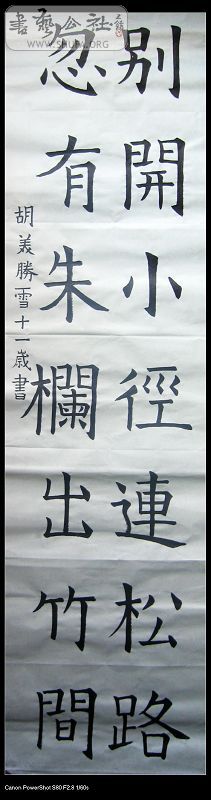 書藝公社
WWW.SHUFA.ORG
別開小徑連松路
忽有朱欄出竹間
胡美勝雪十一歲書
Canon PowerShot S80 F2.8 1/60s